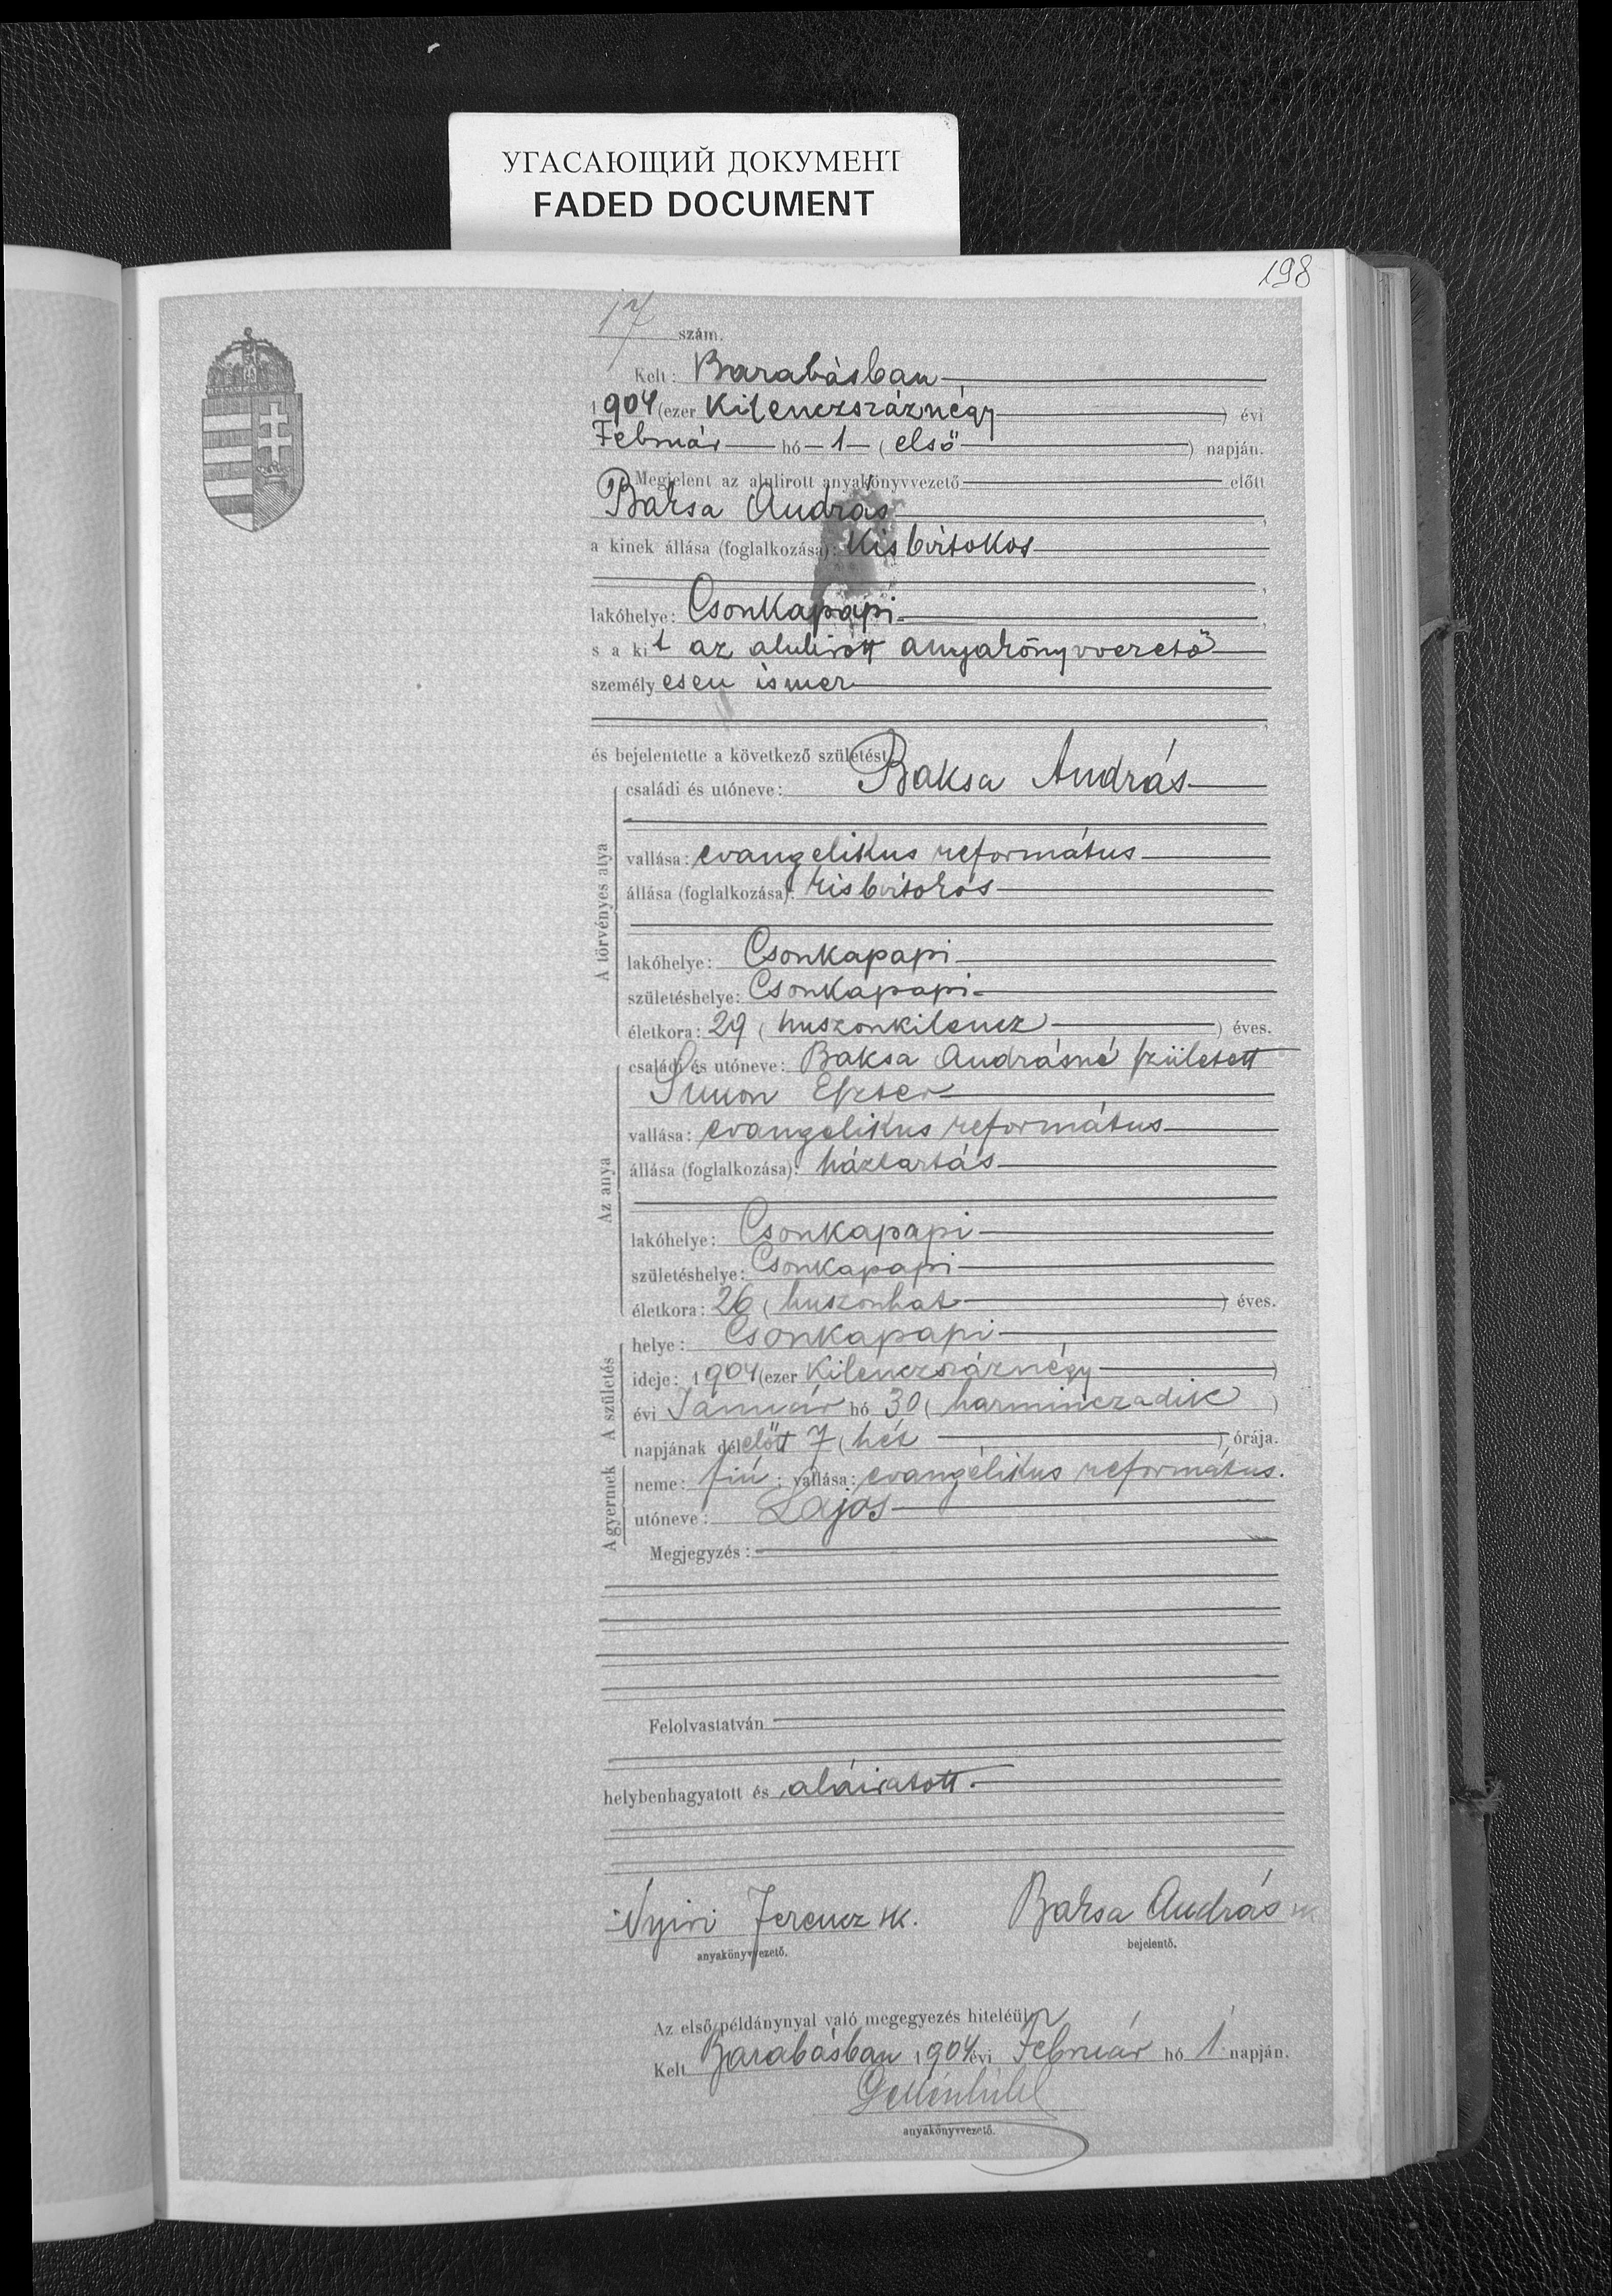 УГАСАЮЩИЙ ДОКУМЕНТ
FADED DOCUMENT
198
17 szám.
Kelt: Barabásban
1904 (ezer kilenczszáznégy) évi
Február hó 1 (első) napján.
Megjelent az alulirott anyakönyvvezető előtt
Baksa András,
a kinek állása (foglalkozása): kisbirtokos
,
lakóhelye: Csonkapapi,
s a kit az alulirott anyakönyvvezető
személyesen ismer
,
és bejelentette a következő születést:
A törvényes atya
családi és utóneve: Baksa András
vallása: evangelikus református
állása (foglalkozása): kisbirtokos
lakóhelye: Csonkapapi
születéshelye: Csonkapapi
életkora: 29 (huszonkilencz) éves.
Az anya
családi és utóneve: Baksa Andrásné született
Simon Eszter
vallása: evangelikus református
állása (foglalkozása): háztartás
lakóhelye: Csonkapapi
születéshelye: Csonkapapi
életkora: 26 (huszonhat) éves.
A születés
helye: Csonkapapi
ideje: 1904 (ezer kilenczszáznégy)
évi Január hó 30 (harminczadik)
napjának délelőtt 7 (hét) órája.
A gyermek
neme: fiú; vallása: evangélikus református.
utóneve: Lajos
Megjegyzés:
Felolvastatván
helybenhagyatott és aláiratott.
Nyiri Ferencz sk. Baksa András sk
anyakönyvvezető. bejelentő.
Az első példánynyal való megegyezés hiteléül:
Kelt Barabásban 1904 évi Február hó 1 napján.
anyakönyvvezető.